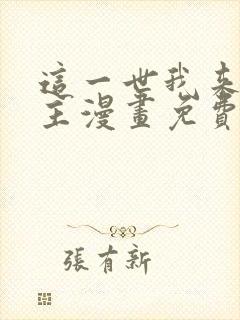 這一世我來
主漫畫免費
張有新